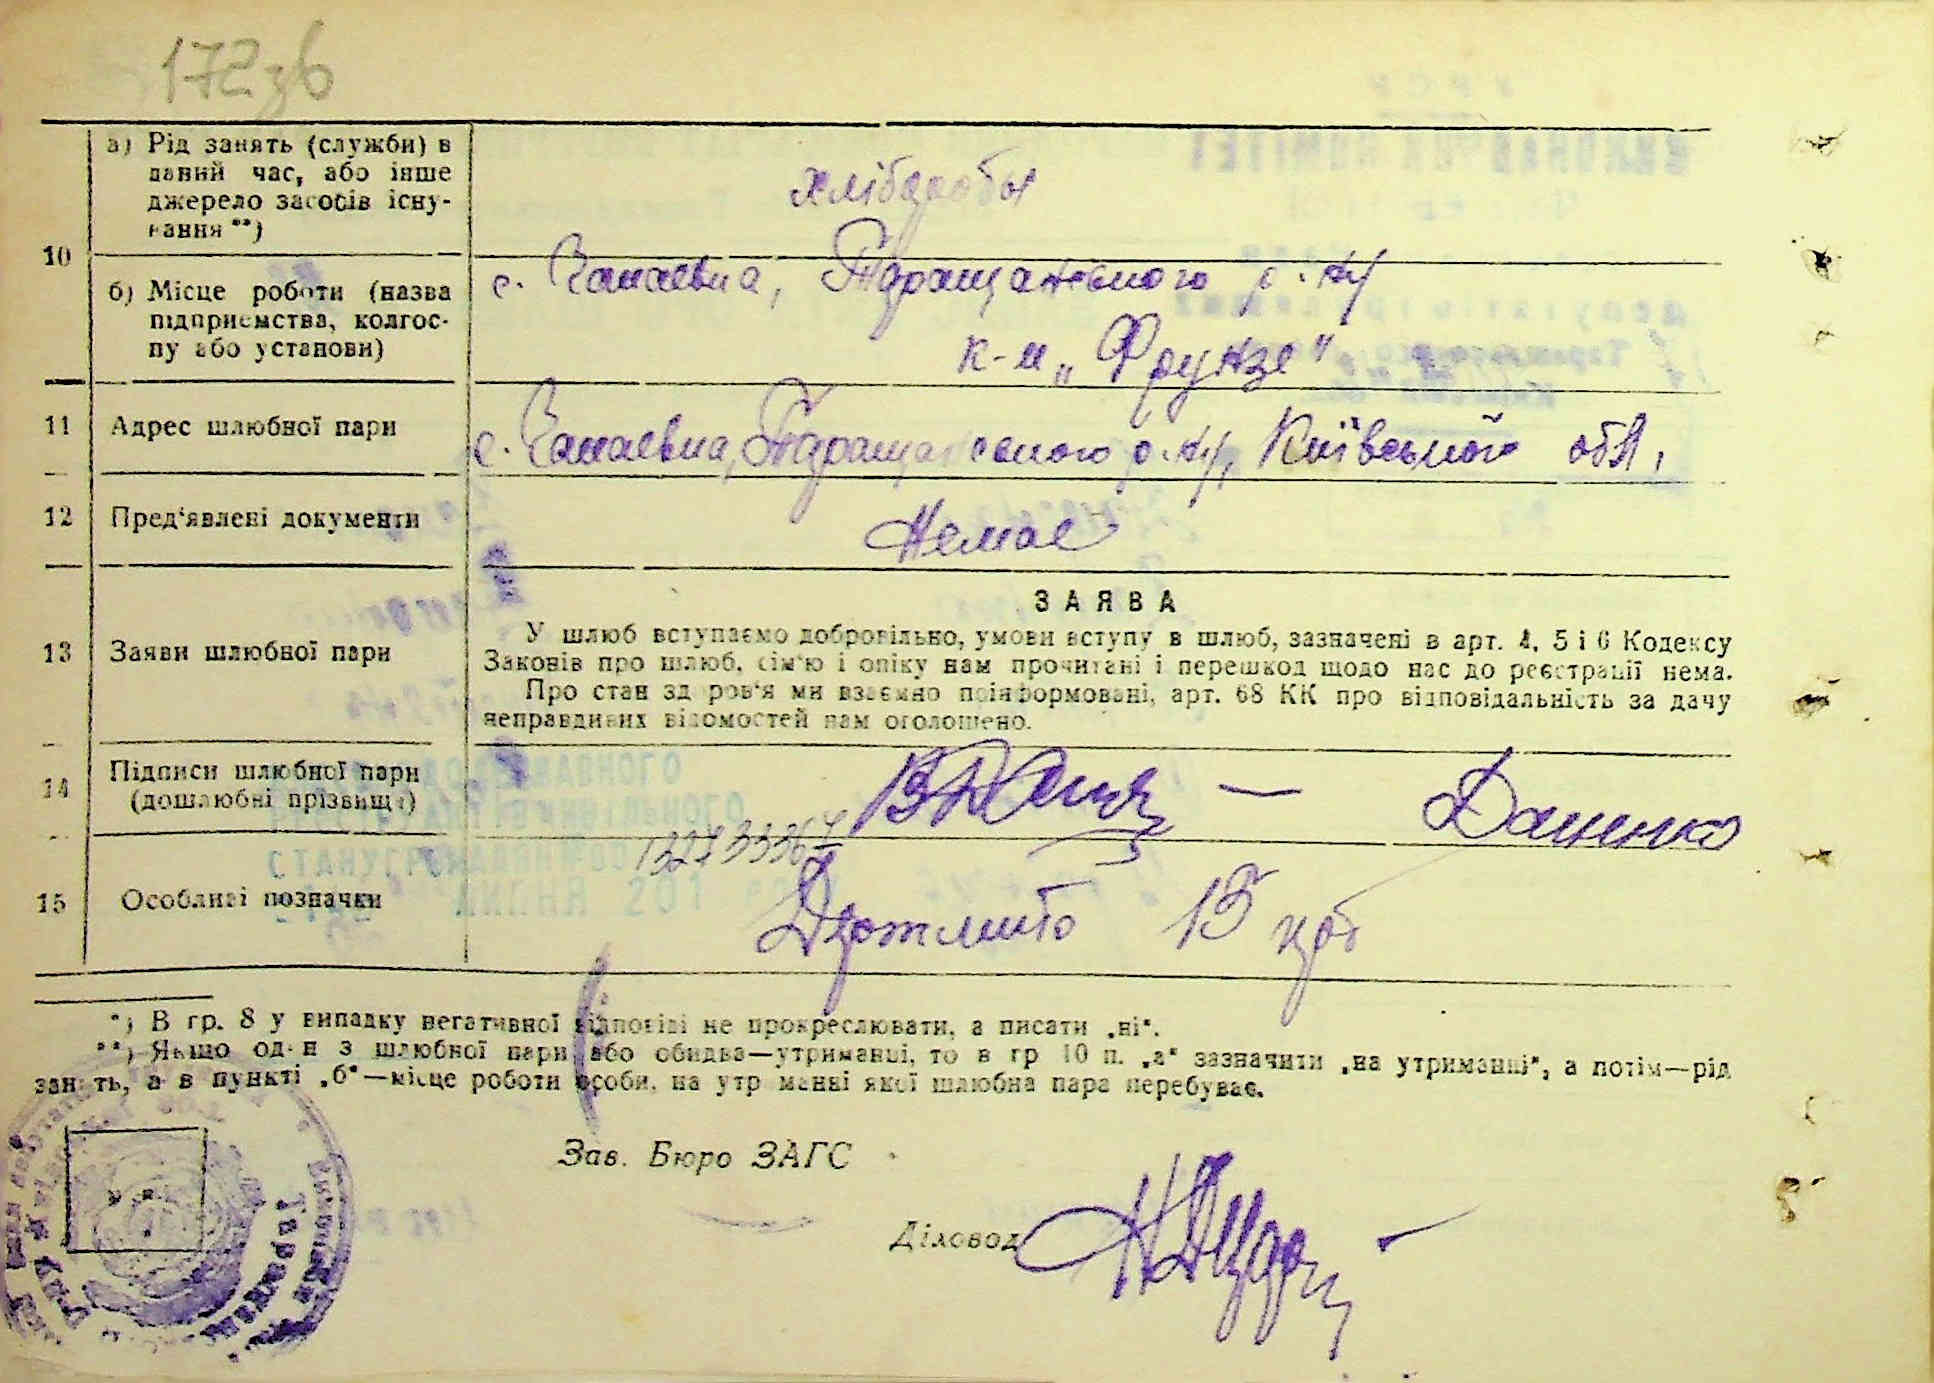 172зв
а) Рід занять (служби) в
даний час, або інше
джерело засобів існу-
вання **)
хлібороби
10
б) Місце роботи (назва
підприємства, колгос-
пу або установи)
с. Чапаєвка, Таращанського р-ну
к-п „Фрунзе"
11 Адрес шлюбної пари
с. Чапаєвка, Таращанського р-ну, Київської обл.
12 Пред'явлені документи
Немає
13 Заяви шлюбної пари
ЗАЯВА
У шлюб вступаємо добровільно, умови вступу в шлюб, зазначені в арт. 4, 5 і 6 Кодексу
Законів про шлюб, сім'ю і опіку нам прочитані і перешкод щодо нас до реєстрації нема.
Про стан здоров'я ми взаємно поінформовані, арт. 68 КК про відповідальність за дачу
неправдивих відомостей нам оголошено.
14 Підписи шлюбної пари
(дошлюбні прізвища)
Даценко
15 Особливі позначки
15 крб
*) В гр. 8 у випадку негативної відповіді не прокреслювати, а писати „ні".
**) Якщо один з шлюбної пари або обидва—утриманці, то в гр 10 п. „а" зазначити „на утриманні", а потім—рід
занять, а в пункті „б"—місце роботи особи, на утриманні якої шлюбна пара перебуває.
Зав. Бюро ЗАГС
Діловод